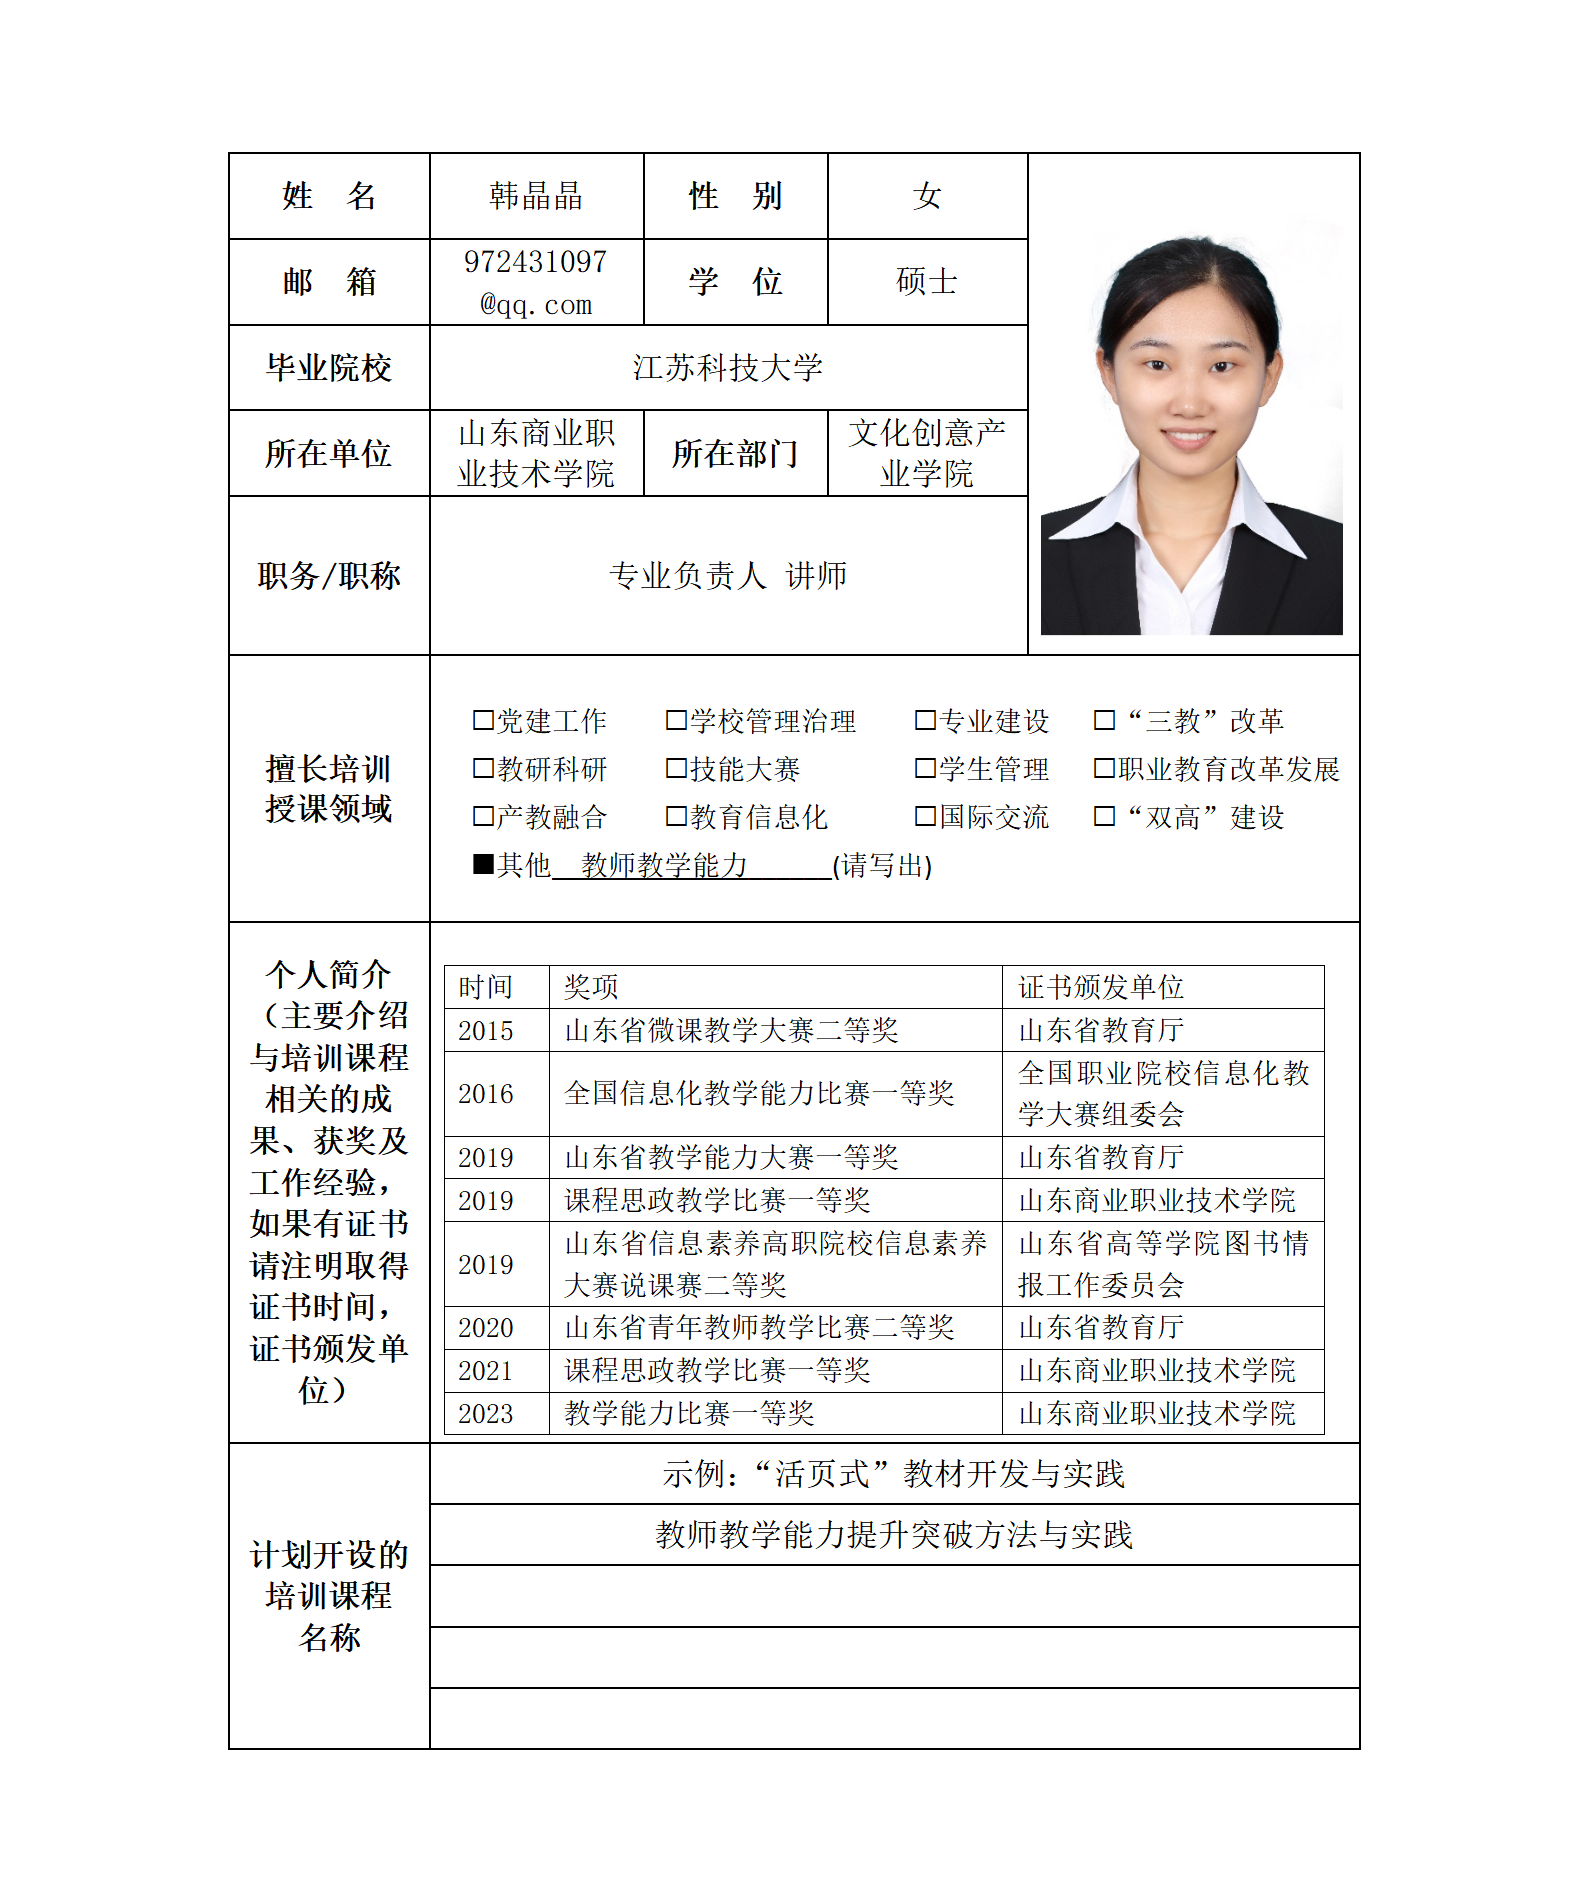 姓 名 韩晶晶 性 别 女
邮 箱 972431097
@qq.com 学 位 硕士
毕业院校 江苏科技大学
所在单位 山东商业职
业技术学院 所在部门 文化创意产
业学院
职务/职称 专业负责人 讲师
擅长培训
授课领域
□党建工作 □学校管理治理 □专业建设 □“三教”改革
□教研科研 □技能大赛 □学生管理 □职业教育改革发展
□产教融合 □教育信息化 □国际交流 □“双高”建设
■其他 教师教学能力 (请写出)
个人简介
（主要介绍
与培训课程
相关的成
果、获奖及
工作经验，
如果有证书
请注明取得
证书时间，
证书颁发单
位）
时间 奖项 证书颁发单位
2015 山东省微课教学大赛二等奖 山东省教育厅
2016 全国信息化教学能力比赛一等奖 全国职业院校信息化教
学大赛组委会
2019 山东省教学能力大赛一等奖 山东省教育厅
2019 课程思政教学比赛一等奖 山东商业职业技术学院
2019 山东省信息素养高职院校信息素养
大赛说课赛二等奖 山东省高等学院图书情
报工作委员会
2020 山东省青年教师教学比赛二等奖 山东省教育厅
2021 课程思政教学比赛一等奖 山东商业职业技术学院
2023 教学能力比赛一等奖 山东商业职业技术学院
计划开设的
培训课程
名称
示例：“活页式”教材开发与实践
教师教学能力提升突破方法与实践